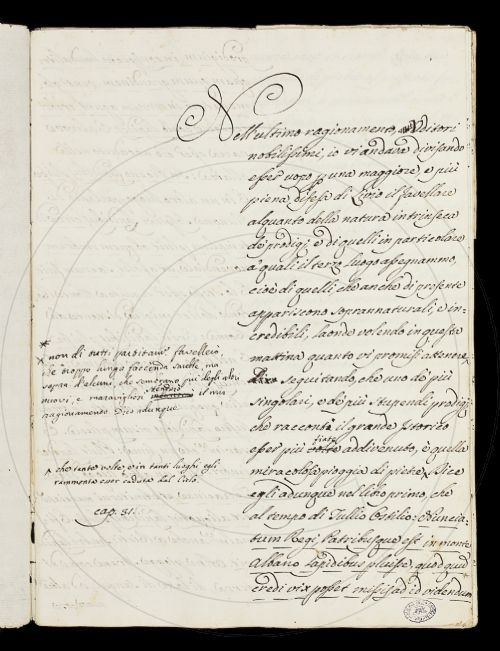 Nell'ultimo ragionamento, Uditori
nobilissimi, io vi andava divisando
esser uopo p una maggiore, e più
piena difesa di Livio il favellare
alquanto della natura intrinseca
de' prodigj, e di quelli in particolare
a' quali il terzo luogo assegnammo,
cioè di quelli, che anche di presente
appariscono soprannaturali, e in-
credibili, laonde volendo in questa
mattina quanto vi promisi attenere
seguitando, che uno de' più
singolari, e de' più stupendi prodigj
che racconta il grande Istorico
esser più fiate addivenuto, è quella
miracolosa pioggia di pietre, ^ Dice
egli adunque nel libro primo, che
al tempo di Tullio Ostilio: Nuncia-
tum Regi, Patribusque est in monte
Albano lapidibus pluisse, quod quum
credi vix posset missis ad id videndum
* non di tutti
che troppo lunga faccenda sarebbe, ma
sopra d'alcuni, che sembrano più degli altri
nuovi, e maravigliosi tenendo il mio
ragionamento. Dico adunque
^ che tante volte, e in tanti luoghi egli
rammenta esser caduta dal Cielo
cap. 31.